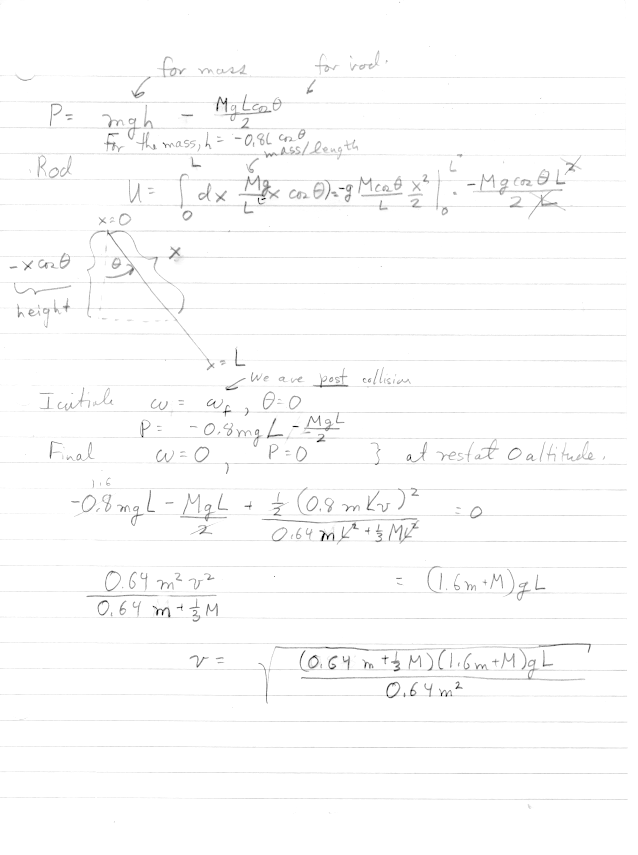 for mass for rod.
P = mgh - MgL cos θ / 2
For the mass, h = -0.8L cos θ
mass/length
Rod
U = ∫₀ᴸ dx Mg/L (-x cos θ) = -g M cos θ / L x²/2 |₀ᴸ = -Mg cos θ L² / 2L
x=0
-x cos θ θ x
height
x=L
We are post collision
Initial ω = ω_f , θ=0
P = -0.8mgL - MgL/2
Final ω=0 , P=0 } at rest at 0 altitude.
1.6
-0.8mgL - MgL/2 + ½ (0.8 m L v)² / (0.64 m L² + ⅓ M L²) = 0
0.64 m² v² / (0.64 m + ⅓ M) = (1.6m + M) g L
v = √( (0.64 m + ⅓ M)(1.6m + M) g L / 0.64 m² )